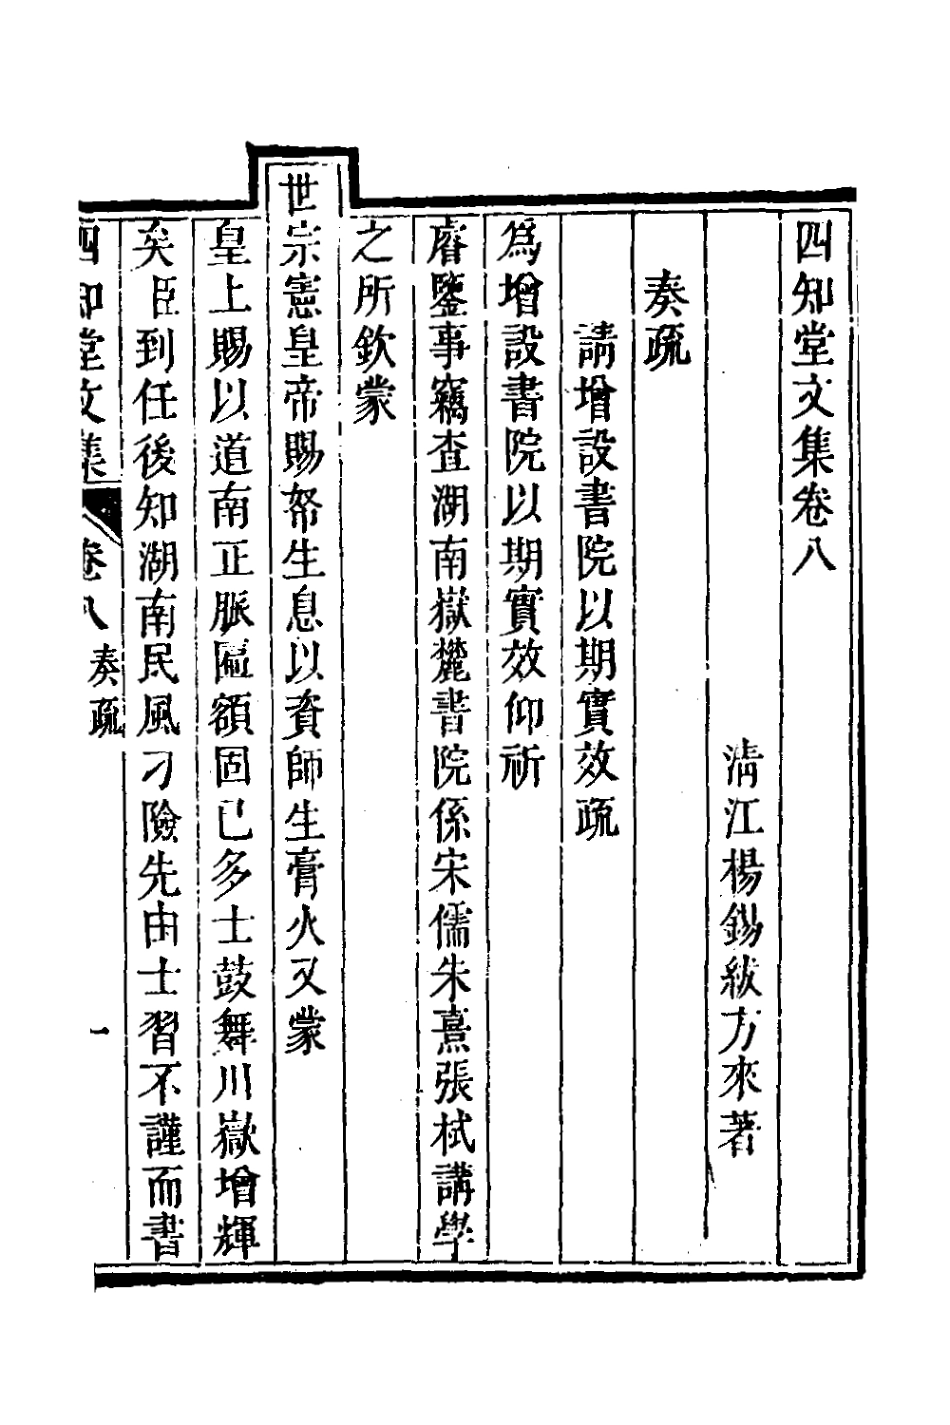 四知堂文集卷八
清江楊錫紱方來著
奏疏
請增設書院以期實效疏
爲增設書院以期實效仰祈
睿鑒事竊查湖南嶽麓書院係宋儒朱熹張栻講學
之所欽蒙
世宗憲皇帝賜帑生息以資師生膏火又蒙
皇上賜以道南正脈匾額固已多士鼓舞川嶽增輝
矣臣到任後知湖南民風刁險先由士習不謹而書
四知堂文集 卷八 奏疏 一